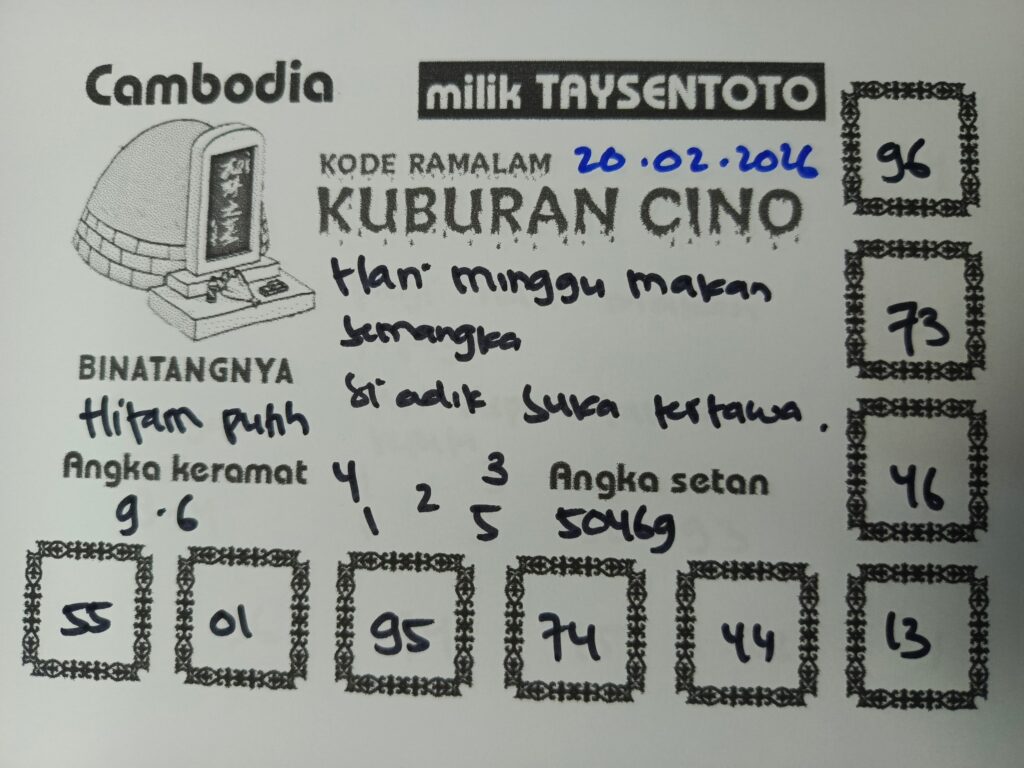 Cambodia
milik TAYSENTOTO
KODE RAMALAM 20.02.2026
KUBURAN CINO
Hari minggu makan
semangka
si adik suka tertawa.
BINATANGNYA
Hitam putih
Angka keramat
9.6
4 3
2
1 5
Angka setan
50469
96
73
46
55 01 95 74 44 13